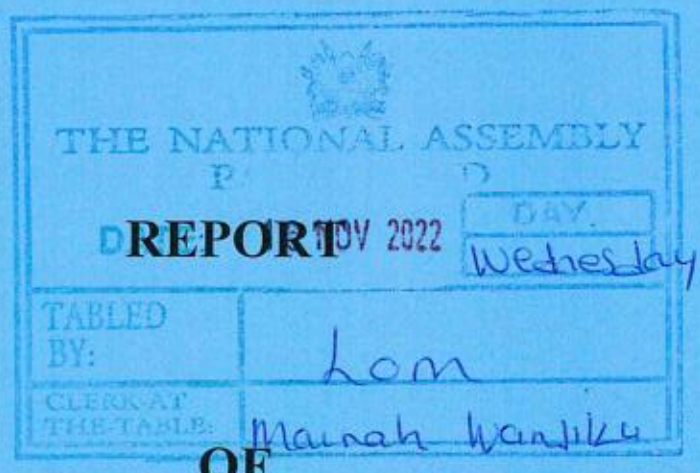 THE NATIONAL ASSEMBLY
REPORT NOV 2022
DAY.
Wednesday
TABLED
BY:
LOM
CLERK-AT
THE-TABLE:
Mainah Wanjiku
OF